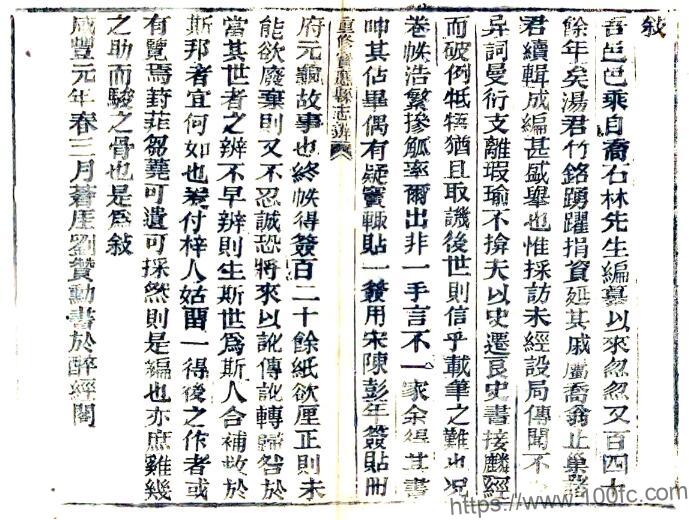 敍
吾邑邑乘自喬石林先生編纂以來忽忽又百四十
餘年矣湯君竹銘踴躍捐資延其戚屬喬翁止巢
君續輯成編甚盛舉也惟採訪未經設局傳聞不
异詞曼衍支離瑕瑜不掩夫以史遷良史書接麟經
而破例牴牾猶且取譏後世則信乎載筆之難也况
卷帙浩繁摻觚率爾出非一手言不一家余得其書
呻其佔畢偶有疑竇輒貼一簽用宋陳彭年簽貼冊
重修寶應縣志辨
府元龜故事也終帙得簽百二十餘紙欲厘正則未
能欲廢棄則又不忍誠恐將來以訛傳訛轉歸咎於
當其世者之辨不早辨則生斯世為斯人合補救於
斯邦者宜何如也爰付梓人姑留一得後之作者或
有覽焉葑菲芻蕘可遺可採然則是編也亦庶雞幾
之助而駿之骨也是為敍
咸豐元年春三月蒼厓劉贊勳書於醉經閣
https://www.100fc.com